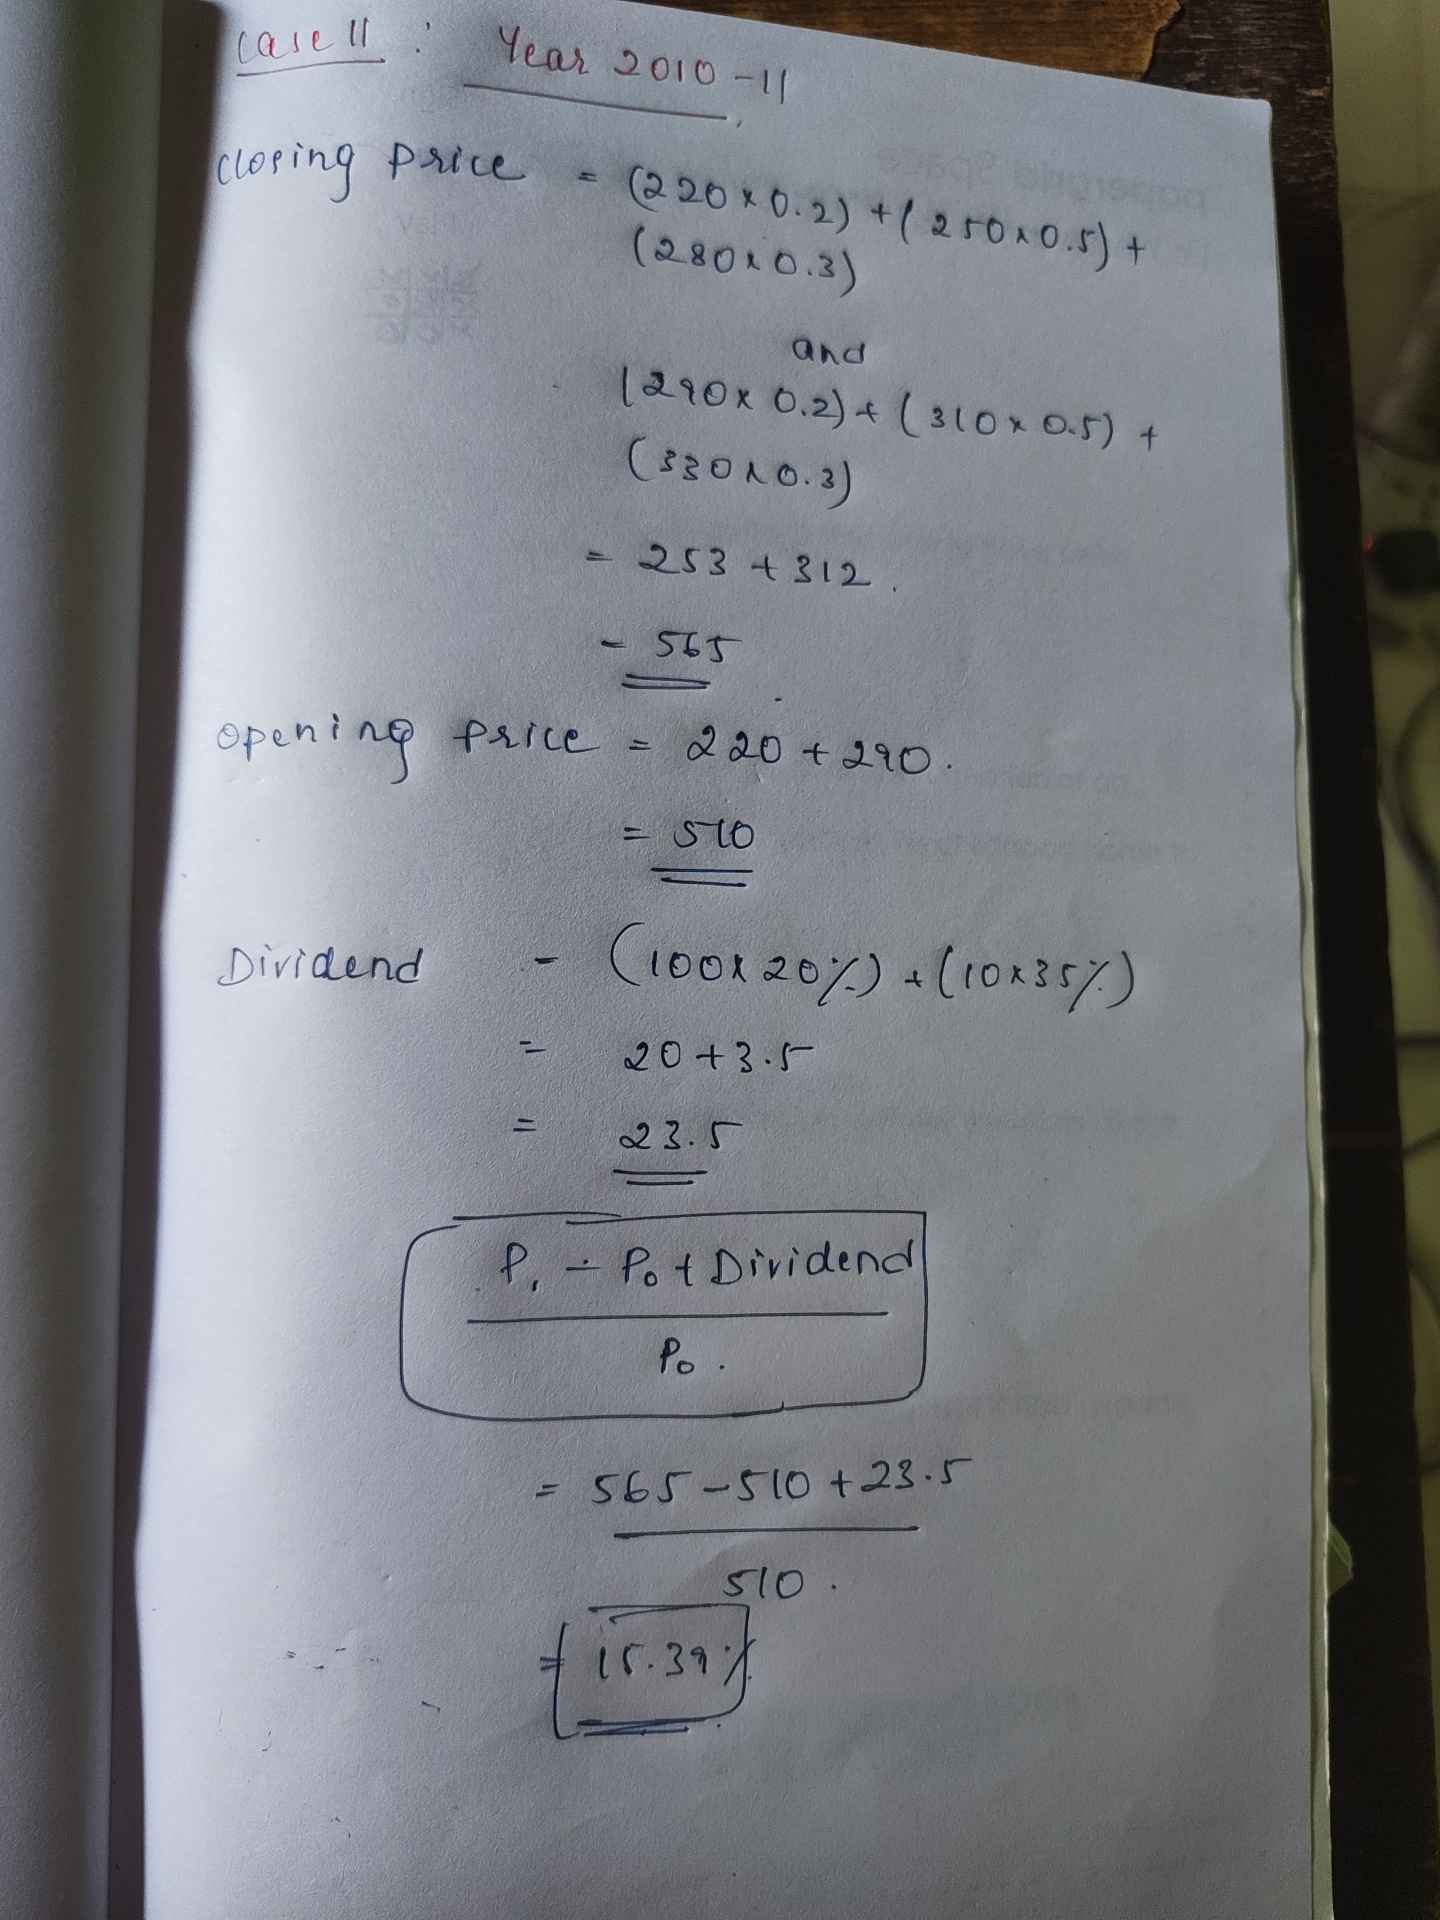 Case II : Year 2010-11
Closing price = (220 x 0.2) + (250 x 0.5) +
(280 x 0.3)
and
(290 x 0.2) + (310 x 0.5) +
(330 x 0.3)
= 253 + 312.
= 565
Opening Price = 220 + 290.
= 510
Dividend = (100 x 20%) + (10 x 35%)
= 20 + 3.5
= 23.5
P₁ - P₀ + Dividend
P₀.
= 565 - 510 + 23.5
510.
= 15.39%